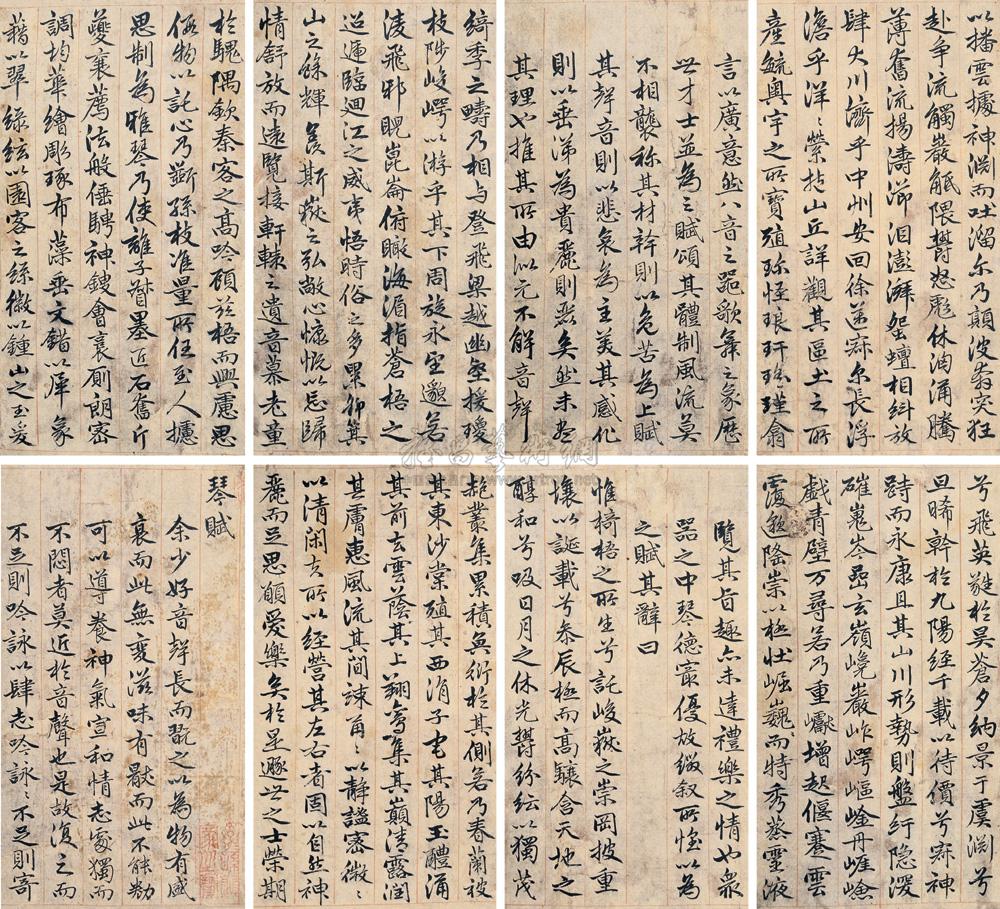 琴賦
余少好音聲長而翫之以為物有盛
衰而此無變滋味有厭而此不能勌
可以導養神氣宣和情志處獨而
不悶者莫近於音聲也是故復之而
不足則吟詠以肆志吟詠〻不足則寄
言以廣意然八音之器歌舞之象歷
世才士並為之賦頌其體制風流莫
不相襲称其材幹則以危苦為上賦
其聲音則以悲哀為主美其感化
則以垂涕為貴麗則麗矣然未盡
其理也推其所由似元不解音聲
覽其旨趣亦未達禮樂之情也衆
器之中琴德最優故綴叙所懷以為
之賦其辭曰
惟椅梧之所生兮託峻嶽之崇岡披重
壤以誕載兮叅辰極而高驤含天地之
醇和兮吸日月之休光欝紛紜以獨茂
兮飛英蕤於昊蒼夕納景于虞渊兮
旦晞幹於九陽經千載以待價兮寂神
跱而永康且其山川形勢則盤紆隐深
磪嵬岑嵒玄嶺巉巖岞崿嶇崯丹崖嶮
巇青壁万尋若乃重巘增起偃蹇雲
覆邈隆崇以極壮崛巍〻而特秀蒸靈液
以播雲據神渊而吐溜尔乃顛波奔突狂
赴争流觸巖觝隈欝怒彪休洶涌騰
薄奮流揚濤瀄汩澎湃蜿蟺相糾放
肆大川濟乎中州安回徐邁寂尔長浮
澹乎洋〻縈抱山丘詳觀其區土之所
産毓奥宇之所寶殖珎怪琅玕瑶瑾翕
赩叢集累積奐衍於其側若乃春蘭被
其東沙棠殖其西涓子宅其陽玉醴涌
其前玄雲蔭其上翔鸞集其巔清露潤
其膚惠風流其間竦肅〻以静謐密微〻
以清閑夫所以經營其左右者固以自然神
麗而足思願愛樂矣於是遯世之士榮期
綺季之疇乃相与登飛梁越幽壑援瓊
枝陟峻崿以游乎其下周旋永望邈若
凌飛邪睨崑崙俯瞰海湄指蒼梧之
迢遞臨迴江之威夷悟時俗之多累仰箕
山之餘輝羡斯嶽之弘敞心慷慨以忘歸
情舒放而遠覽接軒轅之遺音慕老童
於騩隅欽秦客之高吟顧茲梧而興慮思
假物以託心乃斵孫枝准量所任至人攄
思制為雅琴乃使離子督墨匠石奮斤
夔襄薦法般倕騁神鎪會裛厠朗密
調均華繪彫琢布藻垂文錯以犀象
藉以翠緑絃以園客之絲徽以鍾山之玉爰